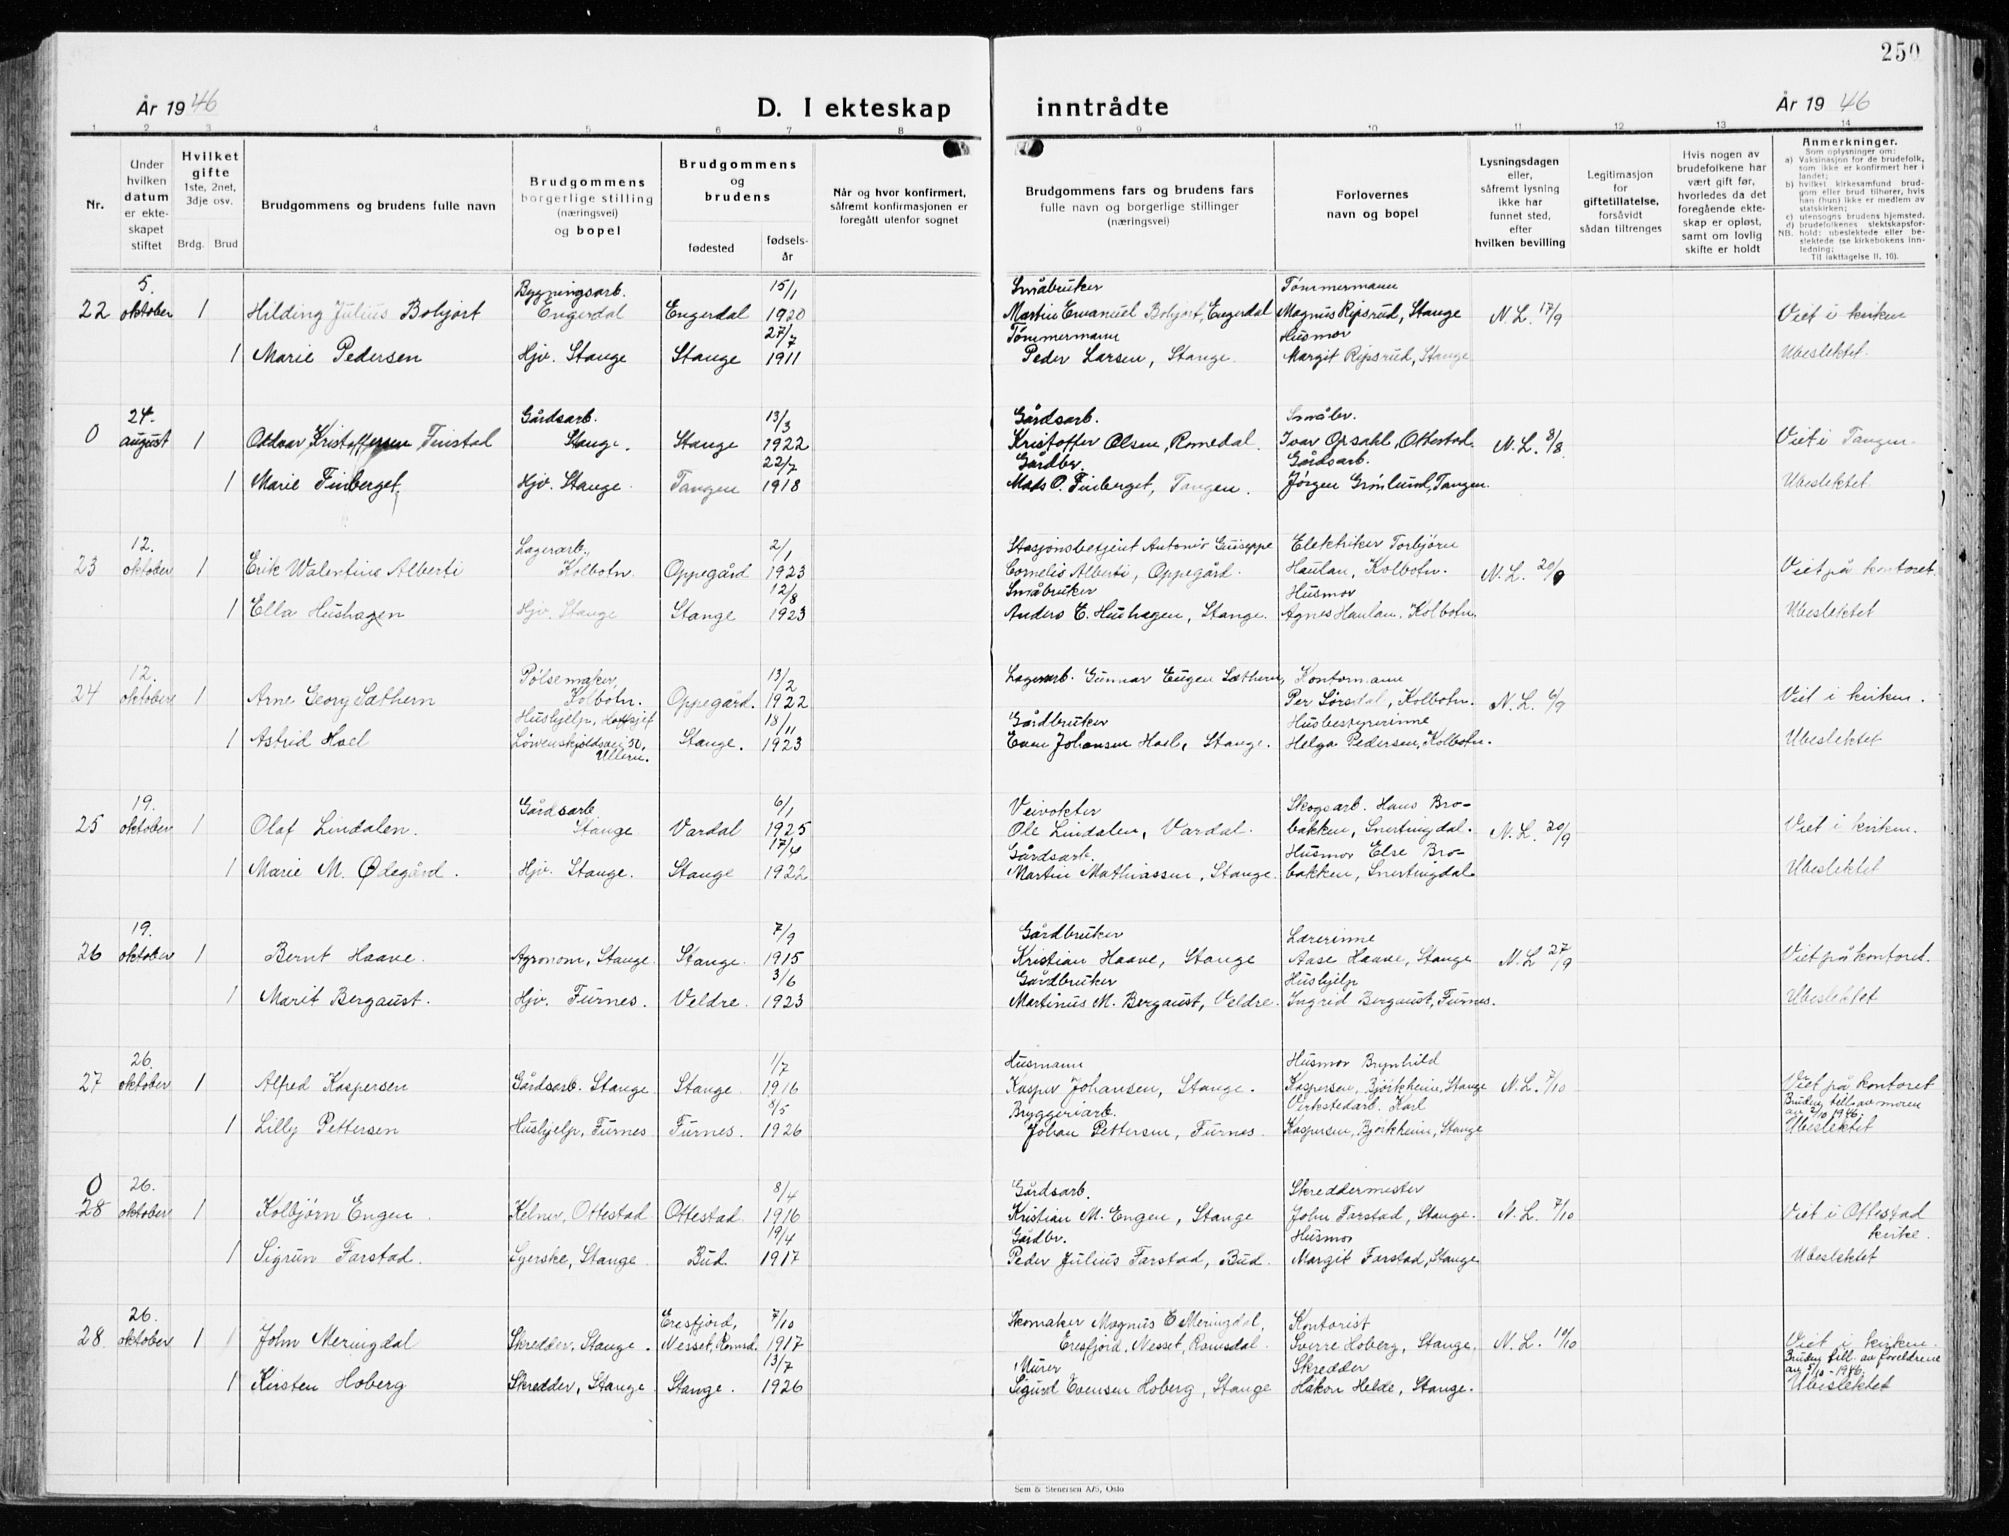 250
År 1946
D. I ekteskap inntrådte
År 1946
1 2 3 4 5 6 7 8 9 10 11 12 13 14
Nr.
Under hvilken datum er ekteskapet stiftet
Hvilket gifte 1ste, 2net, 3dje osv.
Brdg. Brud
Brudgommens og brudens fulle navn
Brudgommens borgerlige stilling (næringsvei) og bopel
Brudgommens og brudens
fødested
fødselsår
Når og hvor konfirmert, såfremt konfirmasjonen er foregått utenfor sognet
Brudgommens fars og brudens fars fulle navn og borgerlige stillinger (næringsvei)
Forlovernes navn og bopel
Lysningsdagen eller, såfremt lysning ikke har funnet sted, efter hvilken bevilling
Legitimasjon for giftetillatelse, forsåvidt sådan tiltrenges
Hvis nogen av brudefolkene har vært gift før, hvorledes da det foregående ekteskap er opløst, samt om lovlig skifte er holdt
Anmerkninger.
Som oplysninger om:
a) Vaksinasjon for de brudefolk, som ikke er konfirmert her i landet;
b) hvilket kirkesamfund brudgom eller brud tilhører, hvis han (hun) ikke er medlem av statskirken;
c) utensogns brudens hjemsted.
d) brudefolkenes slektskapsforhold: ubeslektede eller beslektede (se kirkebokens innledning;
NB. Til iakttagelse II, 10).
5. Bygningsarb. 15/1 Småbruker Tømmermann
22 oktober 1 Hilding Julius Bohjort Engerdal Engerdal 1920 Martin Emanuel Bohjort, Engerdal Magnus Ripsrud, Stange N. L. 17/9 Viet i kirken
27/7 Tømmermann Husmor
1 Marie Pedersen Hjv. Stange Stange 1911 Peder Larsen, Stange. Margit Ripsrud, Stange Ubeslektet.
24. Gårdsarb. 13/3 Gårdsarb. Småbr.
0 august 1 Oddvar Kristoffersen Finstad Stange. Stange 1922 Kristoffer Olsen, Romedal. Ivar Opsahl, Ottestad. N. L. 8/8. Viet i Tangen.
22/7 Gårdbr. Gårdsarb.
1 Marie Finberget, Hjv. Stange. Tangen 1918 Mads O. Finberget, Tangen. Jörgen Grönlund, Tangen. Ubeslektet
12. Lagerarb., 2/1 Stasjonsbetjent Antonio Guiseppe Elektriker Torbjörn
23 oktober 1 Erik Walentius Alberti Kolbotn. Oppegård 1923 Cornelis Alberti, Oppegård. Haulan, Kolbotn. N. L. 20/9 Viet på kontoret.
12/8 Småbruker Husmor
1 Ella Hushagen Hjv. Stange Stange 1923 Anders E. Hushagen, Stange. Agnes Haulan. Kolbotn. Ubeslektet
12. Pölsemaker, 13/2 Lagerarb. Gunnar Eugen Sæthern, Kontormann
24 oktober 1 Arne Georg Sæthern Kolbotn. Oppegård. 1922 Per Sörsdal, Kolbotn. N. L. 6/9 Viet i kirken.
Hushjelp, Hoffsjef 18/11 Gårdbruker Husbestyrerinne
1 Astrid Hoel Löwenskjoldsvei 30, Stange. 1923 Even Johansen Hoel, Stange. Helga Pedersen, Kolbotn. Ubeslektet
Ullern.
19. Gårdsarb 6/1 Veivokter Skogsarb. Hans Bro-
25 oktober 1 Olaf Lindalen. Stange Vardal 1925 Ole Lindalen, Vardal. bakken, Snertingdal. N. L. 20/9 Viet i kirken.
17/6 Gårdsarb. Husmor Else Bro-
1 Marie M. Ødegård. Hjv. Stange. Stange 1922 Martin Mathiassen, Stange. bakken, Snertingdal. Ubeslektet
19. 7/9 Gårdbruker Lærerinne
26 oktober 1 Bernt Haave. Agronom, Stange. Stange. 1915 Kristian Haave, Stange Aase Haave, Stange N. L 27/9 Viet på kontoret.
3/6 Gårdbruker Hushjelp
1 Marit Bergaust. Hjv. Furnes. Veldre. 1923 Martinus M. Bergaust, Veldre. Ingrid Bergaust, Furnes. Ubeslektet
26. 1/7 Husmann Husmor Brynhild
27 oktober 1 Alfred Kaspersen Gårdsarb. Stange Stange 1916 Kasper Johansen, Stange. Kaspersen, Björkheim, Stange N. L. 7/10 Viet på kontoret
8/5 Bryggeriarb. Verkstedarb. Karl Bruden till. av moren av 5/10 1946.
1 Lilly Pettersen Hushjelp, Furnes Furnes. 1926 Johan Pettersen, Furnes. Kaspersen, Björkheim, Stange Ubeslektet
0 26. 8/4 Gårdsarb. Skreddermester
28 oktober 1 Kolbjörn Engen Kelner, Ottestad Ottestad 1916 Kristian M. Engen, Stange John Farstad, Stange. N. L. 7/10 Viet i Ottestad
19/4 Gårdbr. Husmor kirke.
1 Sigrun Farstad. Syerske, Stange Bud. 1917 Peder Julius Farstad, Bud. Margit Farstad, Stange Ubeslektet
26. Eresfjord, 7/10 Skomaker Magnus E Meringdal, Kontorist
28 oktober 1 1 John Meringdal Skredder, Stange. Nesset, Romsd. 1917 Eresfjord, Nesset, Romsdal. Sverre Hoberg, Stange, N. L. 10/10 Viet i kirken.
13/7 Murer Skredder Bruden till. av foreldrene av 5/10-1946.
1 Kirsten Hoberg Skredder, Stange Stange. 1926 Sigurd Evensen Hoberg, Stange Håkon Helde, Stange. Ubeslektet
Sem & Stenersen A/S, Oslo